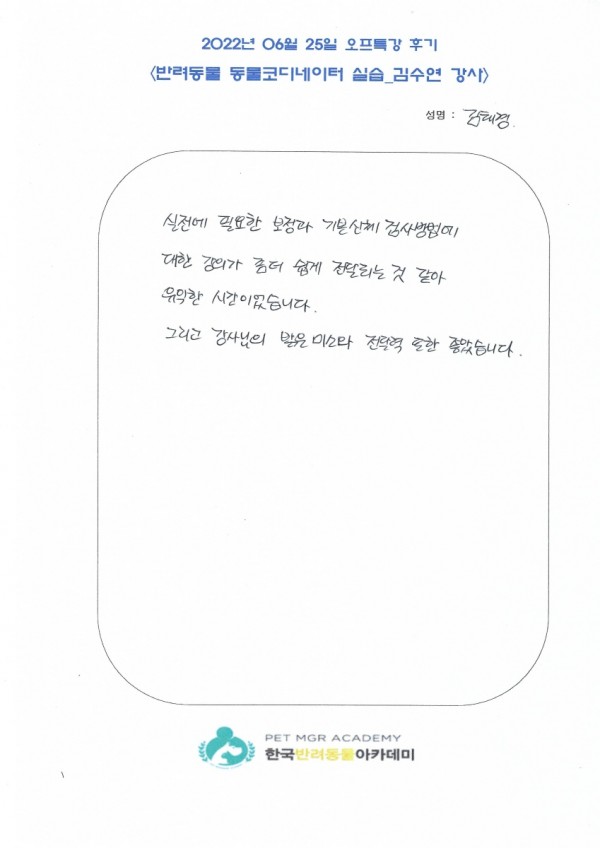 2022년 06월 25일 오프특강 후기
<반려동물 동물코디네이터 실습_김수연 강사>
성명 : 김태경.
실전에 필요한 보정과 기본신체 검사방법에
대한 강의가 좀더 쉽게 전달되는 것 같아
유익한 시간이었습니다.
그리고 강사님의 밝은 미소와 전달력 또한 좋았습니다.
PET MGR ACADEMY
한국반려동물아카데미